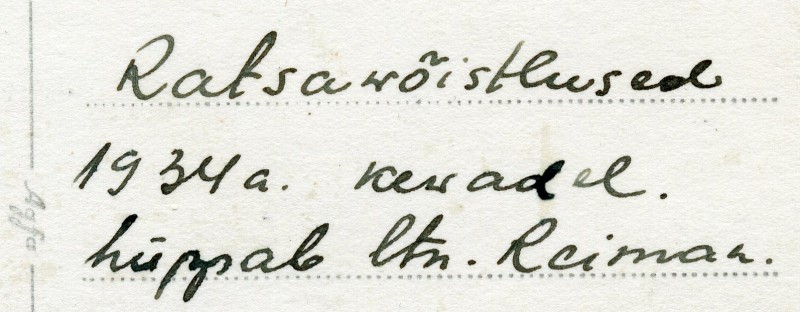 Ratsawõistlused
1934 a. kewadel.
hüppab ltn. Reiman.
Agfa